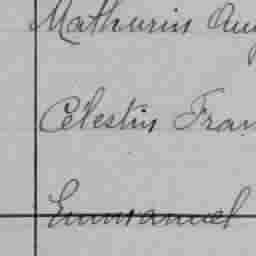 Mathurin Aug
Célestin Fran
Emmanuel